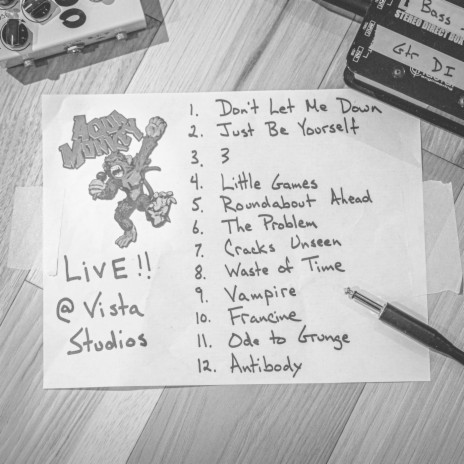 Bass
STEREO DIRECT BOX
Gtr DI
1. Don't Let Me Down
2. Just Be Yourself
3. 3
4. Little Games
5. Roundabout Ahead
6. The Problem
7. Cracks Unseen
8. Waste of Time
9. Vampire
10. Francine
11. Ode to Grunge
12. Antibody
LIVE!!
@ Vista
Studios